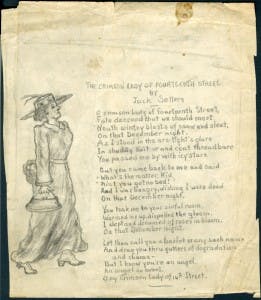 THE CRIMSON LADY OF FOURTEENTH STREET
BY
Jack Sellers
O crimson lady of Fourteenth Street,
Fate decreed that we should meet
'Neath wintry blasts of snow and sleet,
On that December night.
As I stood in the arc-light's glare
In shoddy suit and coat threadbare
You passed me by with icy stare
But you came back to me and said
"What's the matter, Kid,
Ain't you gotno bed?
And I was hungry, wishing I were dead
On that December night.
You took me to your sinful room,
Warmed me up, dispelled the gloom.
I of roses in bloom,
On that December night.
Let them call you a harlot on any back
And drag you thru gutters of degradation
and shame-
But I know you're an angel
An angel
O my Crimson Lady of 14th Street.